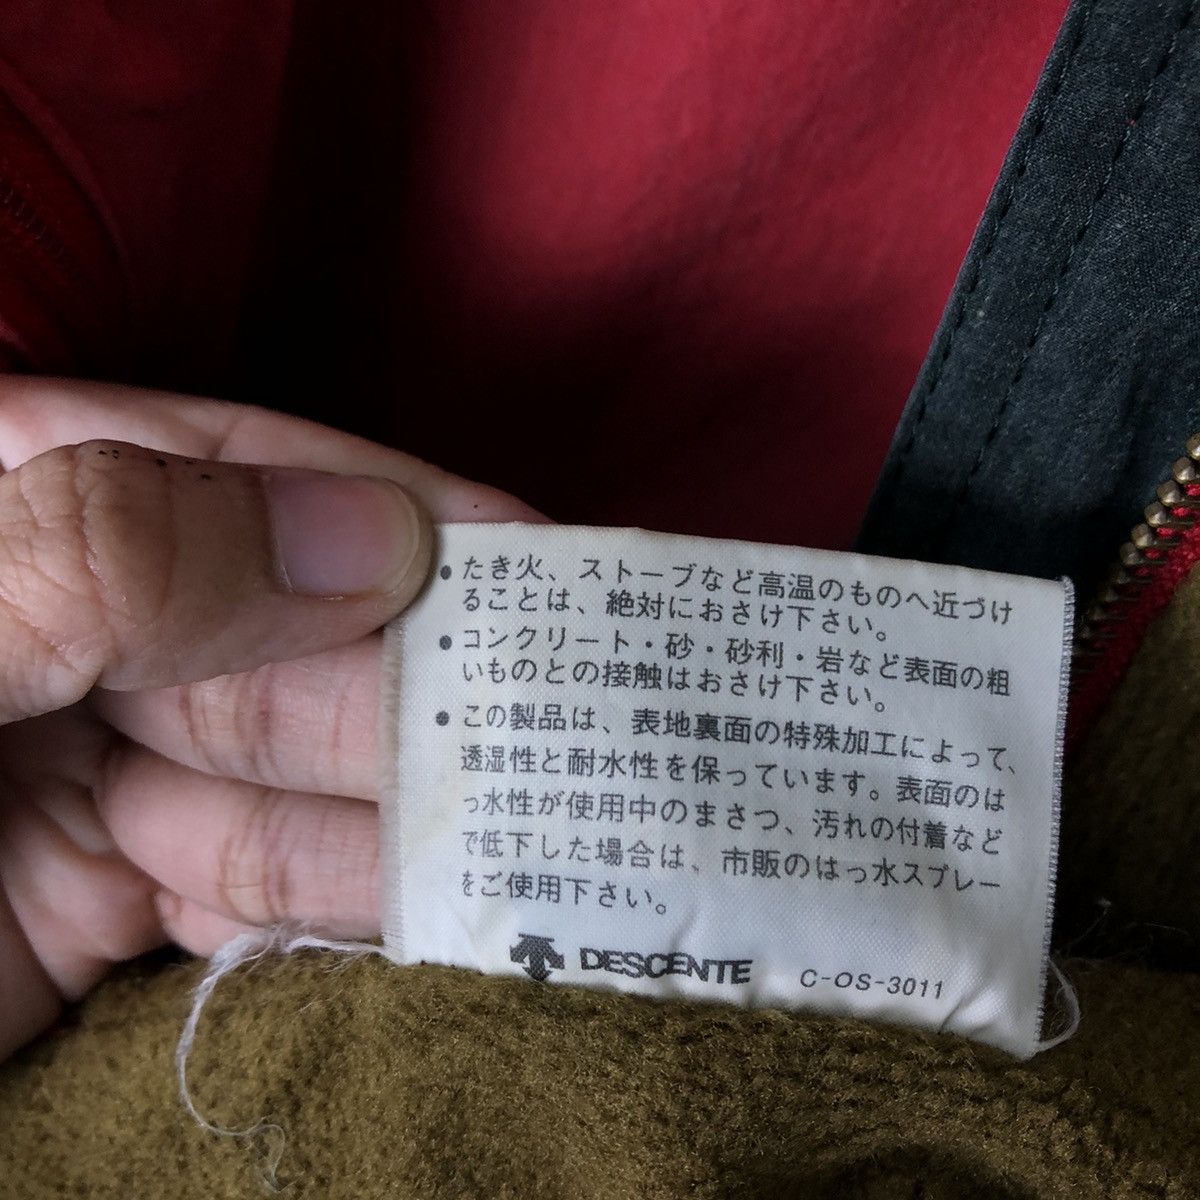 • たき火、ストーブなど高温のものへ近づけ
ることは、絶対におさけ下さい。
• コンクリート・砂・砂利・岩など表面の粗
いものとの接触はおさけ下さい。
• この製品は、表地裏面の特殊加工によって、
透湿性と耐水性を保っています。表面のは
っ水性が使用中のまさつ、汚れの付着など
で低下した場合は、市販のはっ水スプレー
をご使用下さい。
DESCENTE C-OS-3011